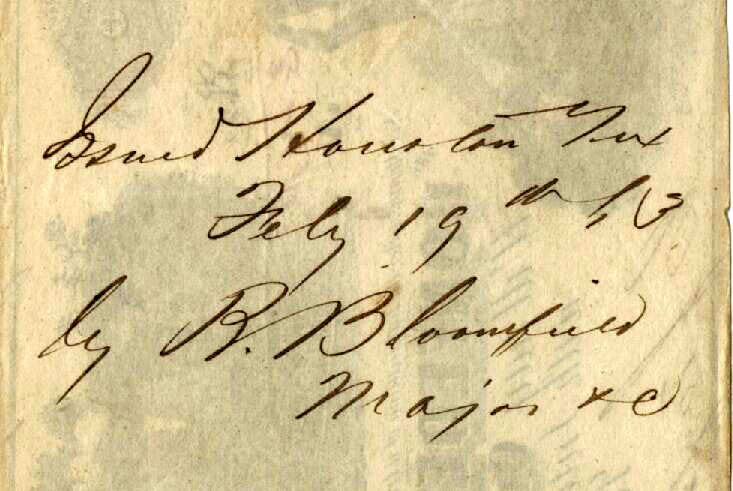 Issued Houston Tex
Feby 19th 63
by B. Bloomfield
Major &c